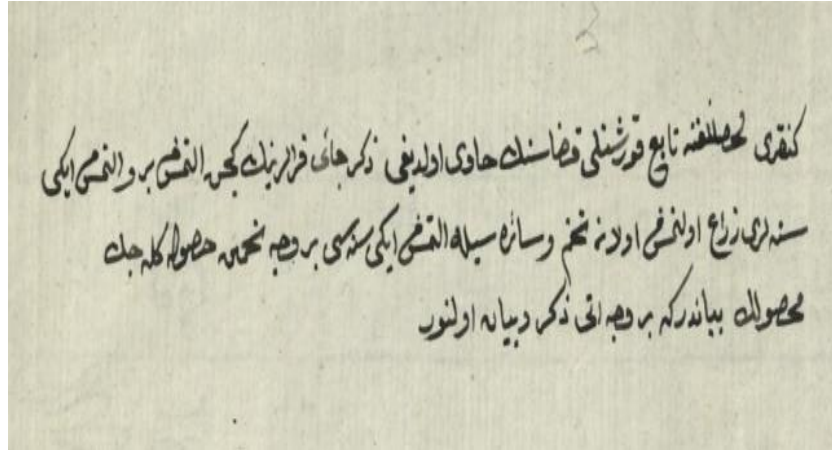 كنقری محصللغنه تابع قورشنلی قضاسنك حاوی اولدیغی ذكر جائی قرالرینك كچن التمش بر و التمش ایكی
سنه لری زراع اولنمش اولان تخم و سائره سیله التمش ایكی سنه سی بر وجه تخمین حصوله كله جك
محصولك بیاندركه بر وجه اتی ذكر و بیان اولنور